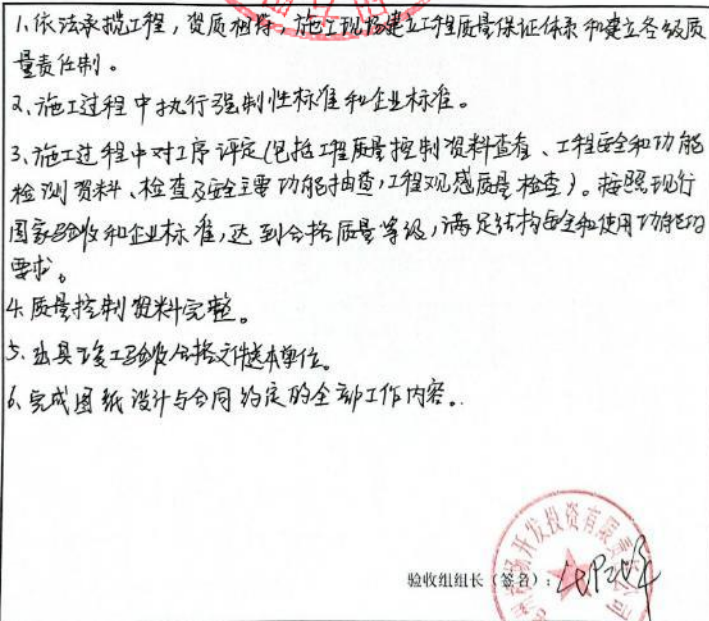 1、依法承揽工程，资质相符，施工现场建立工程质量保证体系和建立各级质
量责任制。
2、施工过程中执行强制性标准和企业标准。
3、施工过程中对工序评定(包括工程质量控制资料查看、工程安全和功能
检测资料、检查及安全主要功能抽查,工程观感质量检查)。按照现行
国家验收和企业标准,达到合格质量等级,满足结构安全和使用功能的
要求。
4、质量控制资料完整。
5、出具竣工验收合格文件送本单位。
6、完成图纸设计与合同约定的全部工作内容。
开发投资有限责任公司
验收组组长（签名）：